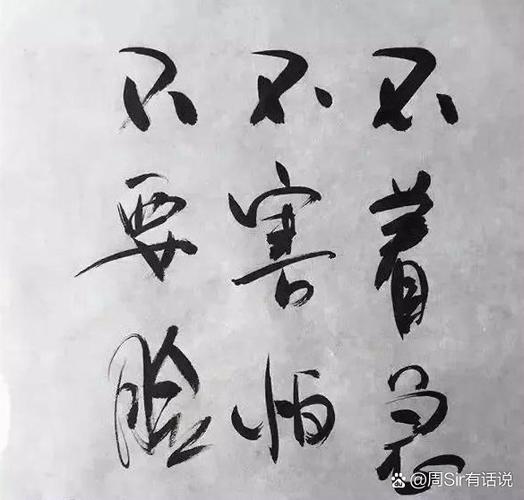 不着急
不害怕
不要脸
@周Sir有话说